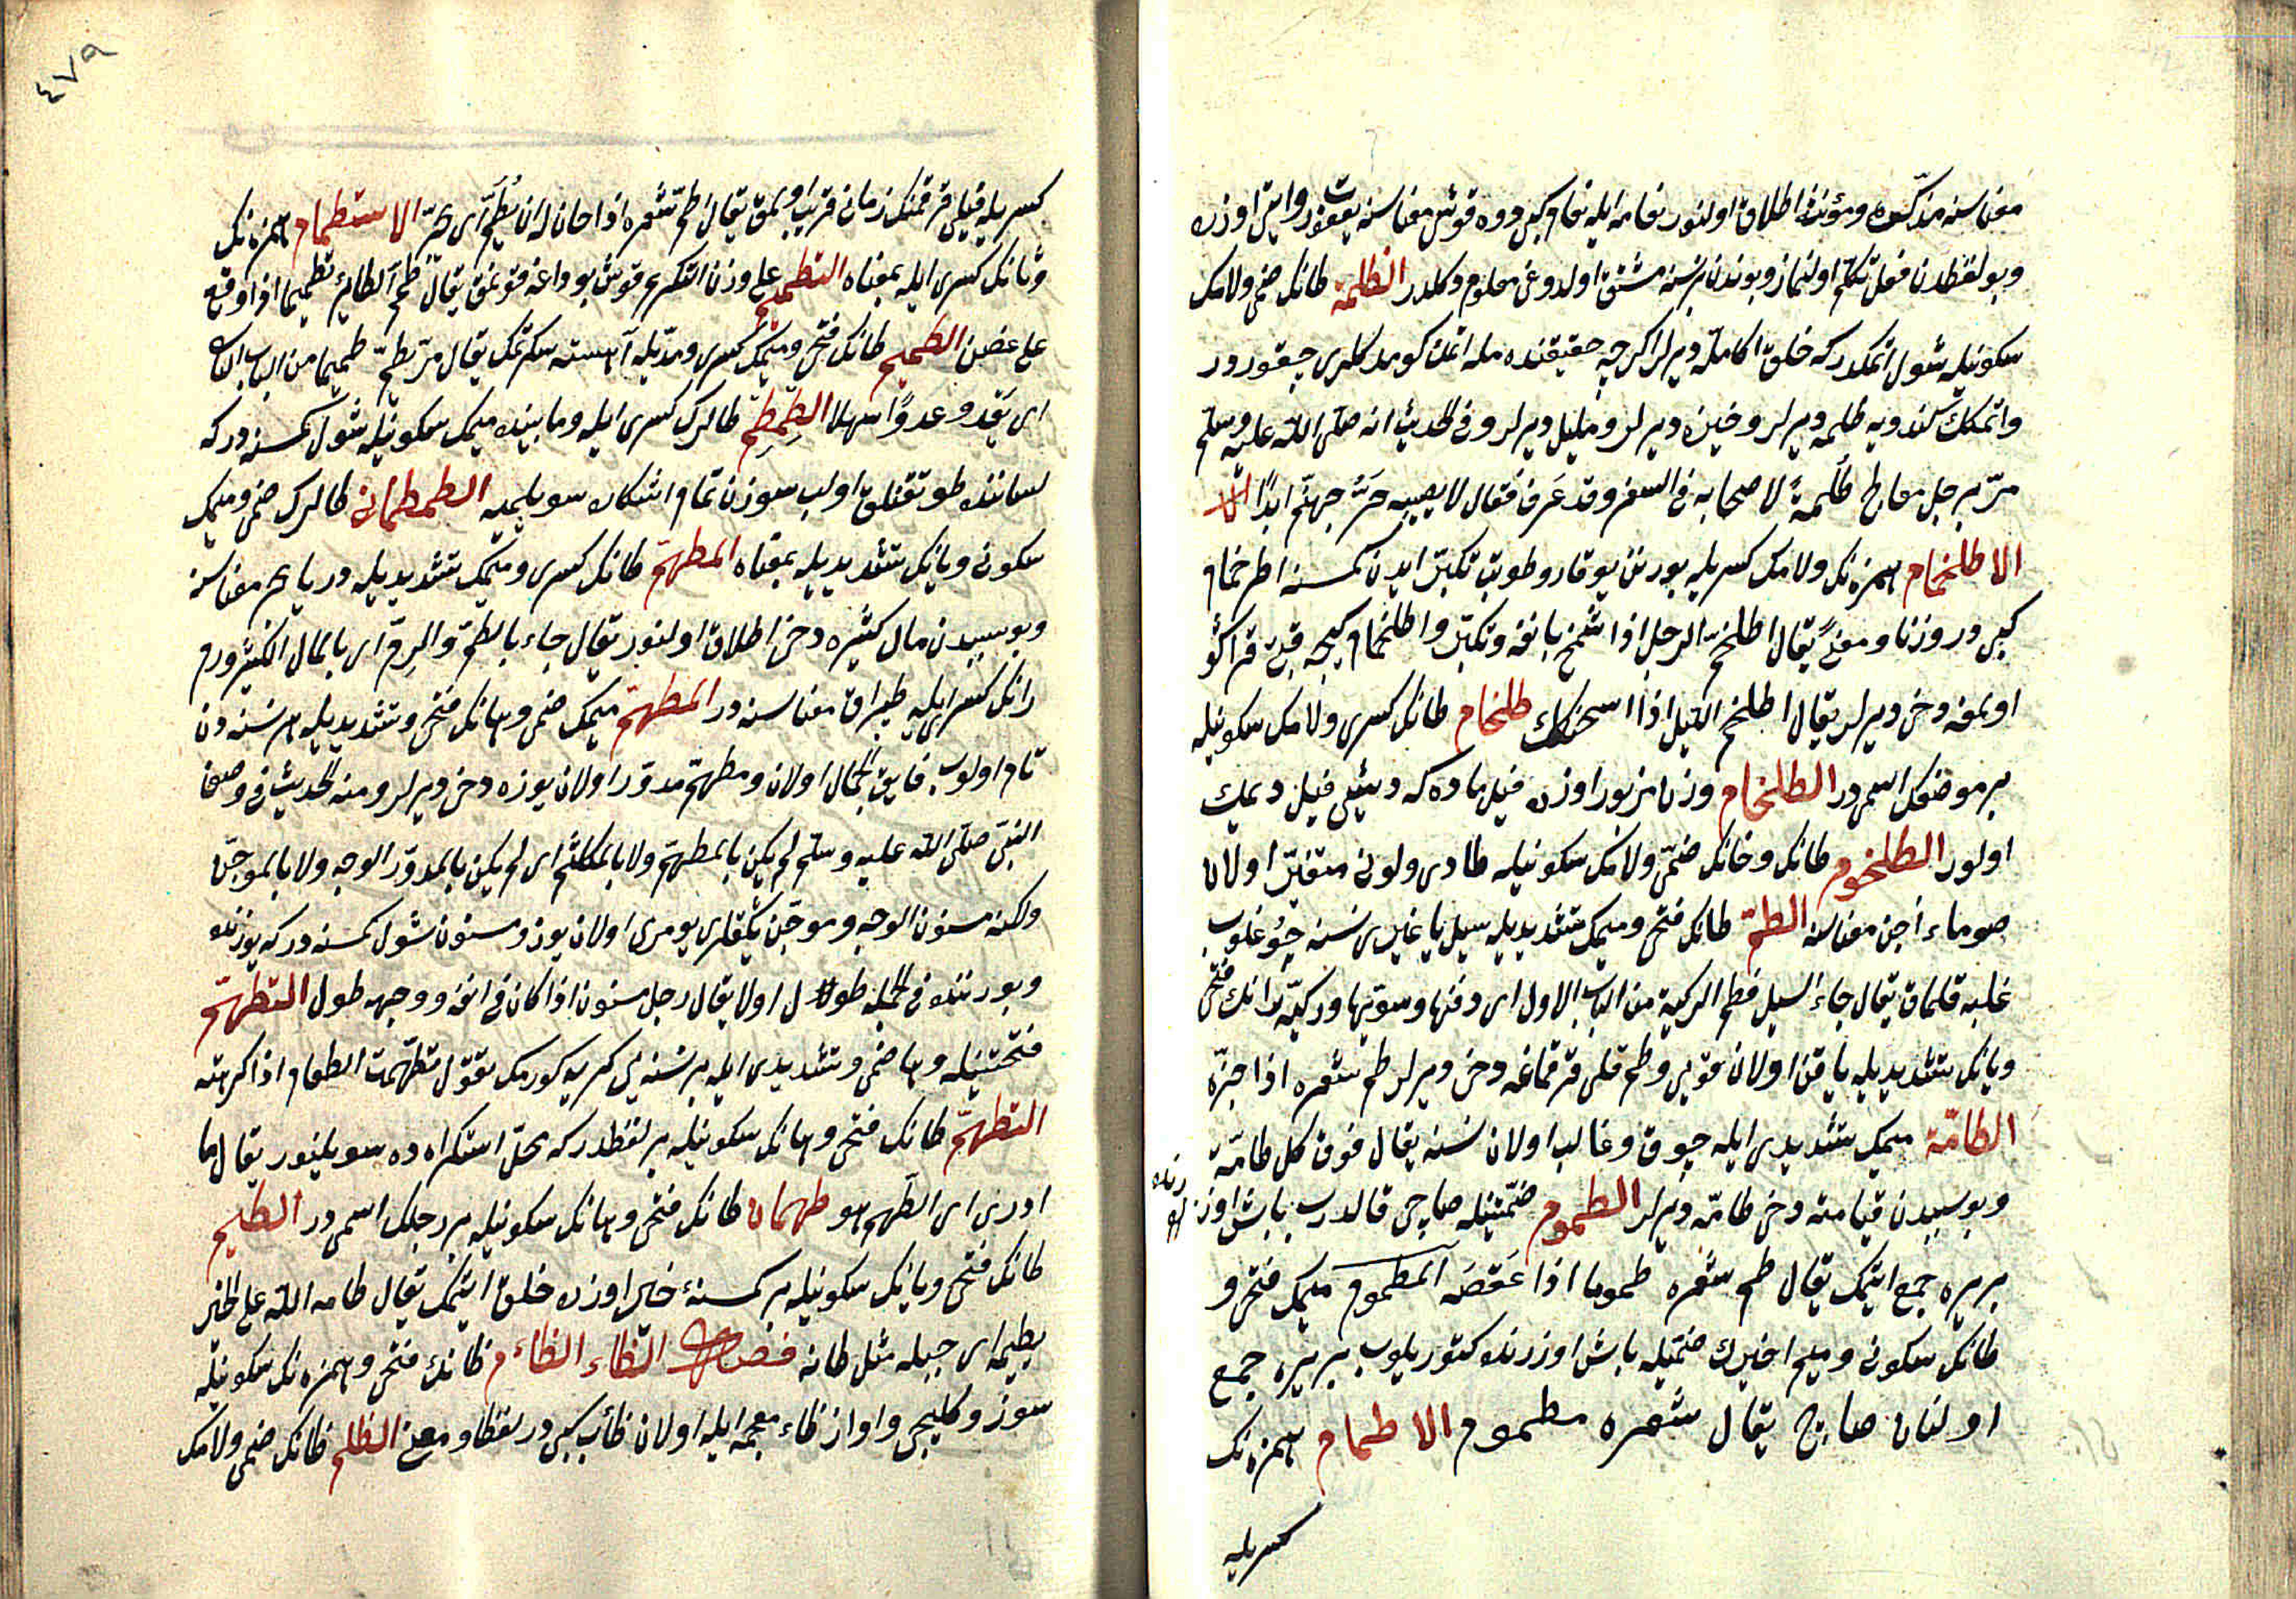 معناسنه مذكره ومؤنثه اطلاق اولنور نعامه ايله نعام كبى ودوه قوشى معناسنه يعقوب روايتى اوزره
وبو لفظدن فعل تكلم اولنماز وبوندن نسنه مشتق اولدوغى معلوم دكلدر الطلمة طانك ضمى ولامك
سكونيله شول اتمكدر كه خلق اكا مله ديرلر اكرچه حقيقنده مله اتمك كومدكلرى چقوردر
واتمكك كندويه طلمه ديرلر وخبزه ديرلر ومليل ديرلر وفى الحديث انه صلى الله عليه وسلم
مر برجل يعالج طلمة لاصحابه فى السفر وقد عرق فقال لا يصيبه حر جهنم ابدا
الاطلخمام همزه نك ولامك كسريله بورنن يوقارو طوتب تكبر ايدن كمسنه اطرخمام
كبى در وزنا ومعنى يقال اطلخم الرجل اذا شمخ بانفه وتكبر واطلخمام كيجه قتى قراكو
اولمغه دخى ديرلر يقال اطلخم الليل اذا اسحنكك طلخام طانك كسرى ولامك سكونيله
بر موضعك اسمى در الطلخام وزن مزبور اوزره فيل ماده كه ديشى فيل ديمك
اولور الطلخوم طانك وخانك ضمى ولامك سكونيله طادى ولونى متغير اولان
صو ماء آجن معناسنه الطم طانك فتحى وميمك تشديديله سيل يا غيرى نسنه چوغلوب
غلبه قلماق يقال جاء السيل فطم الركية من الباب الاول اى دفنها وسويها وركيه رانك فتحى
ويانك تشديديله ياقن اولان قويى وطم قلى قرقماغه دخى ديرلر طم شعره اذا جزه
الطامة ميمك تشديدى ايله چوق وغالب اولان نسنه يقال فوق كل طامة
وبو سببدن قيامته دخى طامه ديرلر الطموم ضمتينله صاچى قالدرب باش اوزرنده
بر يره جمع ايتمك يقال طم شعره طموما اذا عقصه المطموم ميمك فتحى و
طانك سكونى وميم اخيرك ضمتيله باش اوزرنده كتوريلوب بر يره جمع
اولنان صاچ يقال شعره مطموم الاطمام همزه نك
كسريله
٤٧٩
كسريله قيلى قرقمنك زمانى قريب اولمق يقال اطم شعره اذا حان له ان يطم اى يجز الاستطمام همزه نك
وتانك كسرى ايله بمعناه التطميم على وزن التكريم قوش بوداغه قونمق يقال طمم الطائر تطميما اذا وقع
على غصن الطميم طانك فتحى وميمك كسرى ومديله آهسته سكرتمك يقال مر يطم طميما من الباب الثانى
اى يعدو عدوا سهلا الطمطم طالرك كسرى ايله وما بينده ميمك سكونيله شول كمسنه در كه
لسانند طوتقنلق اولب سوزن تمام اشكاره سويليميه الطمطمانى طالرك ضمى وميمك
سكونى ويانك تشديديله بمعناه الطم طانك كسرى وميمك تشديديله دريا بحر معناسنه
وبو سببدن مال كثيره دخى اطلاق اولنور يقال جاء بالطم والرم اى بالمال الكثير ورم
رانك كسرى ايله طپراق معناسنه در المطهم ميمك ضمى وهانك فتحى وتشديديله هر نسنه دن
تام اولوب فايق الجمال اولان ومطهم مدور اولان يوزه دخى ديرلر ومنه الحديث فى وصف
النبى صلى الله عليه وسلم لم يكن بالمطهم ولا بالمكلثم اى لم يكن بالمدور الوجه ولا بالموجن
ولكنه مسنون الوجه وموجن يكاقلرى يومرى اولان يوز ومسنون شول كمسنه در كه يوزنده
وبورننده فى الجمله طول اولا يقال رجل مسنون اذا كان فى انفه ووجهه طول التطهم
فتحتينله وهاضمى وتشديدى ايله بر نسنه يى كريه كورمك تقول تطهمت الطعام اذا كرهته
الطهم طانك فتحى وهانك سكونيله بر لفظدر كه محل استكراه ده سويلنور يقال ما
ادرى اى الطهم هو طهمان طانك فتحى وهانك سكونيله بر رجلك اسمى در الطيم
طانك فتحى ويانك سكونيله بر كمسنه خير اوزره خلق ايتمك يقال طامه الله على الخير
يطيمه اى جبله مثل طانه فصل الظاء الظأم ظانك فتحى وهمزه نك سكونيله
سوز وكليجى واواز ظاء معجمه ايله اولان ظأب كبى در لفظا ومعنى الظلم ظانك ضمى ولامك